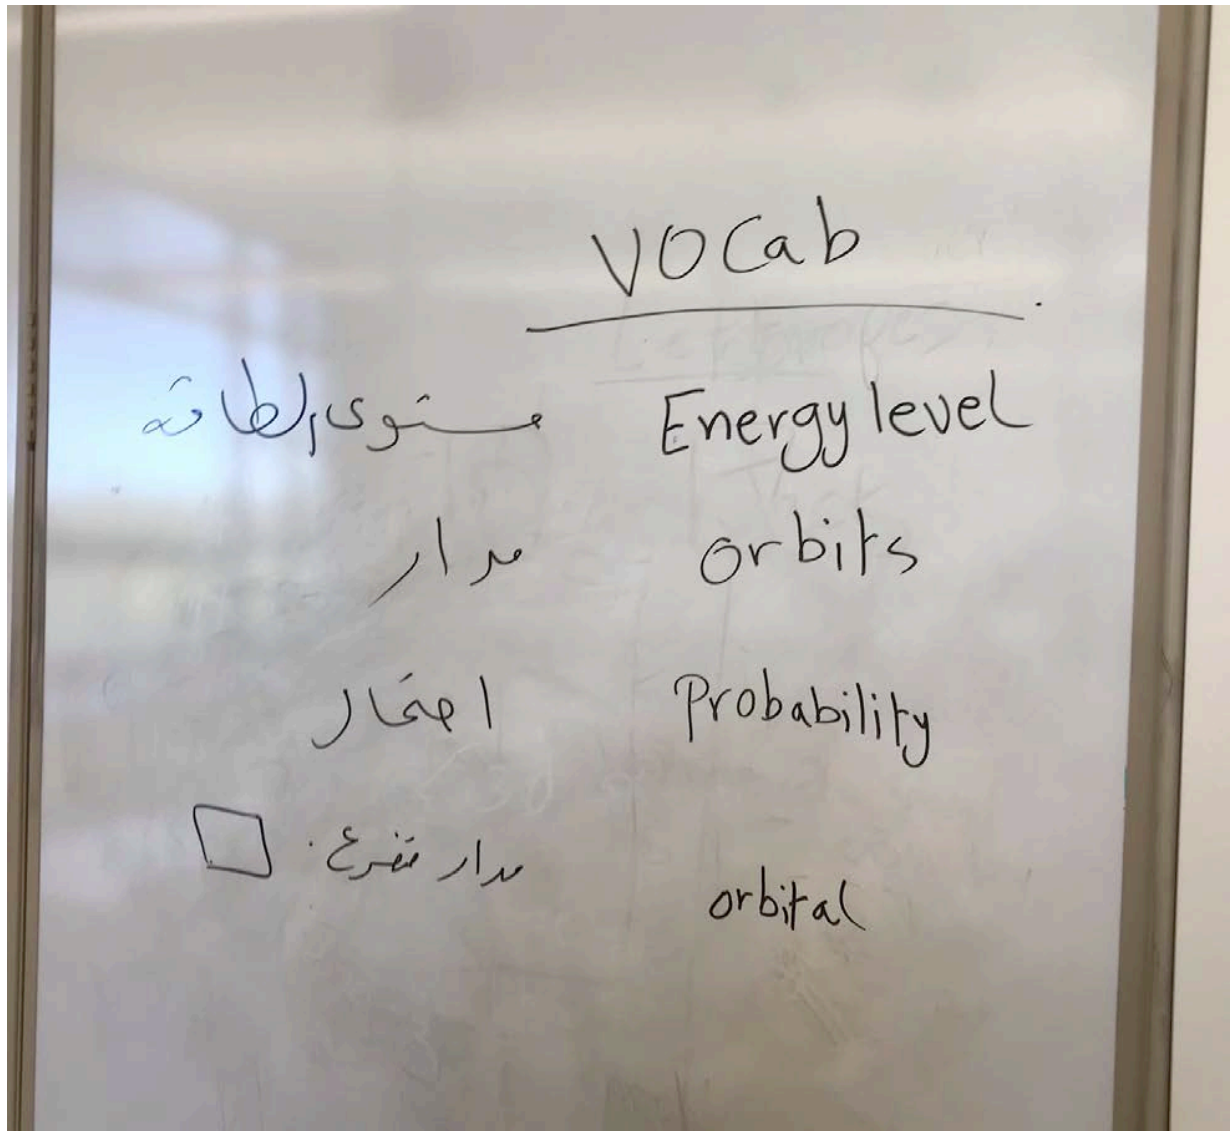 Vocab
Energy level مستوى الطاقة
orbits مدار
Probability احتمال
orbital مدار متفرع.